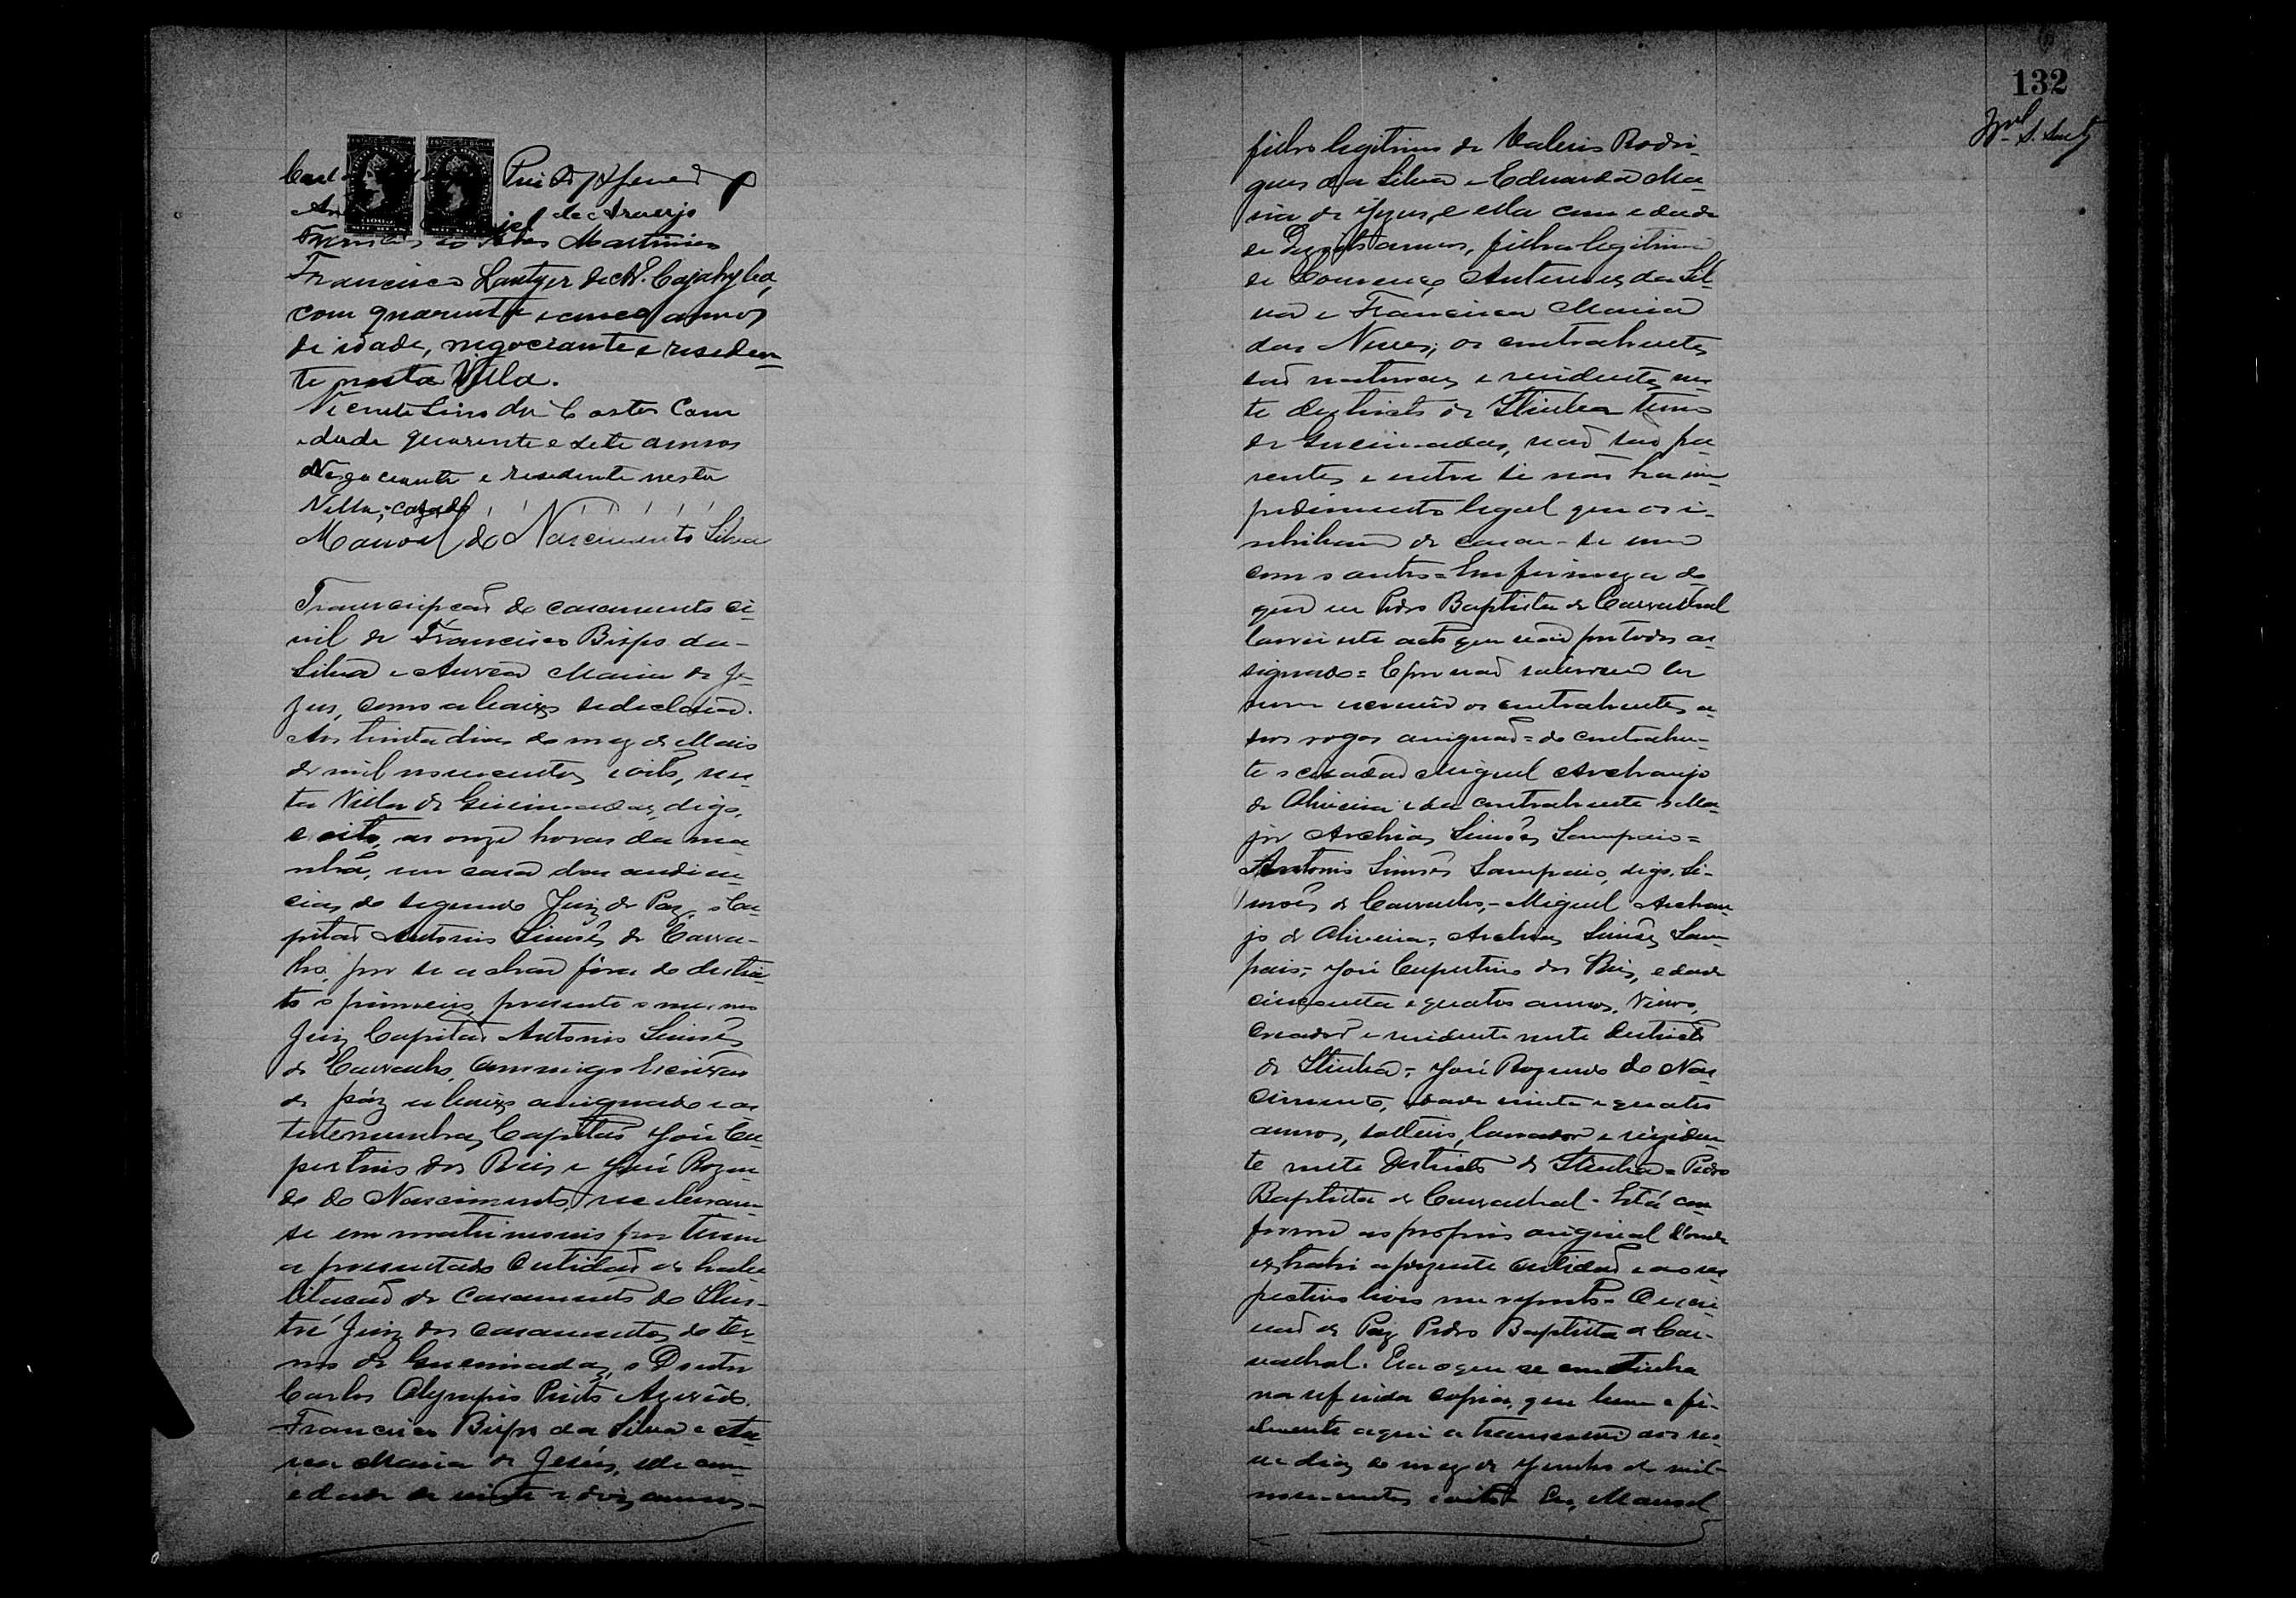 de Araujo
Martins
Francisco
com quarenta e cinco annos
de idade, negociante e residen
te nesta Villa.
Vicente Lino da Costa Com
edade quarenta e sete annos
Negociante e residente nesta
Villa, cazado
Manoel do Nascimento Silva
Transcripção do casamento ci-
vil de Francisco Bispo da
Silva e Aurea Maria de Je-
zus, como abaixo se declara.
Aos trinta dias do mez de Maio
de mil novecentos e oito, nes
ta Villa de Queimadas, digo,
e oito, as onze horas da ma
nhã, em casa das audien
cias do segundo Juiz de Paz, o Ca
pitão Antonio Simões de Carva-
lho, por se achar fóra do distric
to o primeiro, presente o mesmo
Juiz Capitão Antonio Simões
de Carvalho, commigo Escrivão
de páz abaixo assignado e as
testemunhas Capitão José Cu
pertino dos Reis e José Rozen
do do Nascimento, receberam
se em matrimonio por terem
apresentado Certidão de habi
litação de Casamento do Illus-
tre Juiz dos casamentos do ter
mo de Queimadas, o Doutor
Carlos Olympio Pinto Azevedo.
Francisco Bispo da Silva e Au
rea Maria de Jesús, elle com
edade de vinte e dois annos
132
filho legitimo de Valerio Rodri
gues da Silva e Eduarda Ma
ria de Jezus, e ella com edade
de Dezoito annos, filha legitima
de Lourenço Antunes da Sil
va e Francisca Maria
das Neves; os contrahentes
são naturaes e residentes nes
te districto de Itiuba termo
de Queimadas, não são pa
rentes e entre si não ha im
pedimento legal que os i-
nhibam de casar-se um
com o outro = Em firmeza do
que eu Pedro Baptista de Carvalhal
lavrei este acto que vai por todos as
signado = E por não saberem ler
nem escrever os contrahentes a
seos rogos assignão = do contrahen-
te o cidadão Miguel Archanjo
de Oliveira e da contrahente o Ma
jor Archias Simões Sampaio =
Antonio Simões Sampaio, digo, Si-
mões de Carvalho, = Miguel Archan
jo de Oliveira = Archias Simões Sam
paio = José Cupertino dos Reis, edade
cincoenta e quatro annos, Viuvo,
Creador e residente neste Districto
de Itiuba = José Rozendo do Nas
cimento, edade vinte e quatro
annos, solteiro, lavrador e reziden
te neste Districto de Itiuba = Pedro
Baptista de Carvalhal - Está con
forme ao proprio original d'onde
extrahi a prezente certidão e ao res
pectivo livro me reporto = O escri
vão de Paz Pedro Baptista de Car-
valhal. Era o que se continha
na referida copia, que bem e fi-
elmente aqui a transcrevi aos
dias do mez de Junho de mil
novecentos e oito. Eu, Manoel